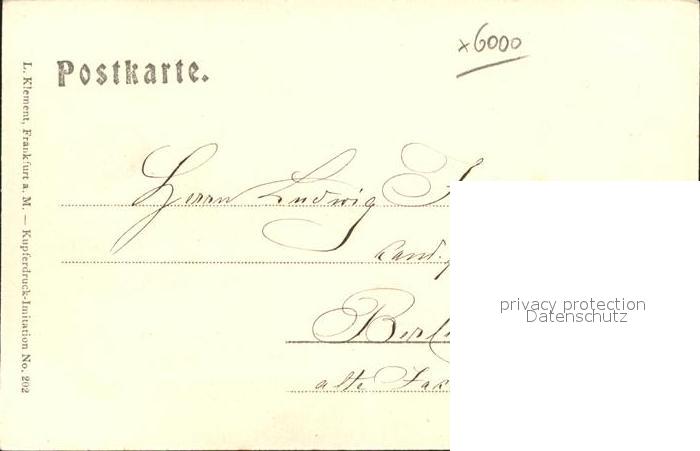 x6000
Postkarte.
L. Klement, Frankfurt a. M. — Kupferdruck-Imitation No. 202
Herrn Ludwig
cand.
alte
privacy protection
Datenschutz